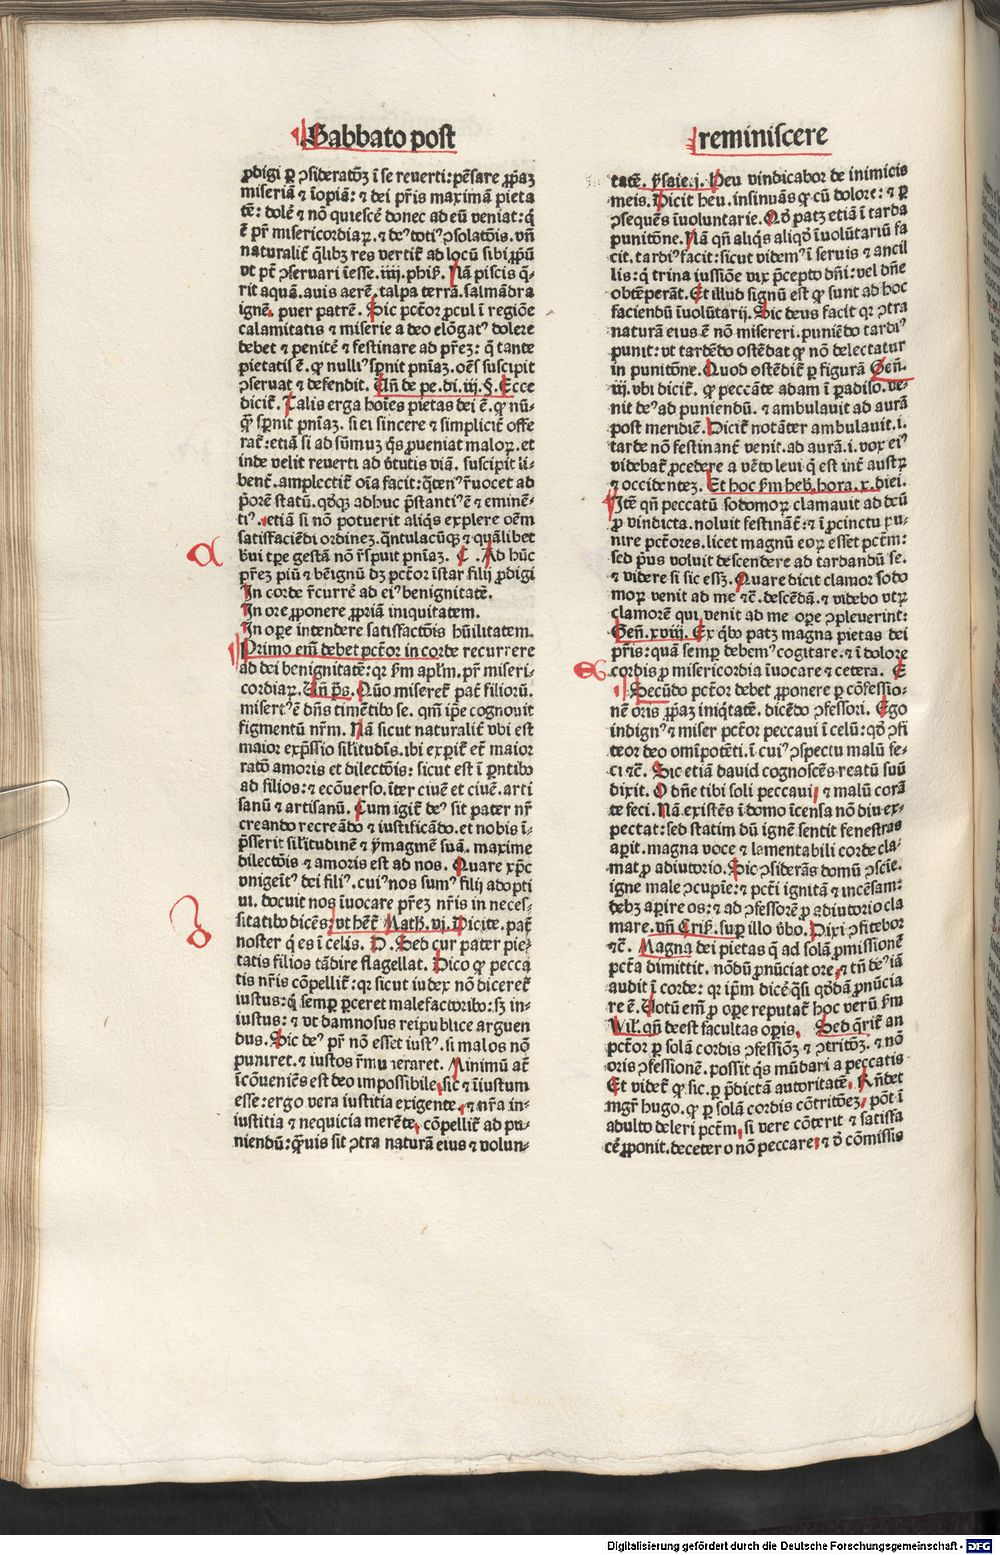 Sabbato post
reminiscere
ꝓdigi ꝑ ↄſideratōꝫ ī ſe reuerti: pēſare ꝓp̄aꝫ
miſeriā ⁊ īopiā: ⁊ dei pr̄is maximā pieta
tē: dolē ⁊ nō quieſcē donec ad eū veniat: q̄
ē pr̄ miſericordiaꝝ. ⁊ deꝰ totiꝰ ↄſolatōis. vn̄
naturalit̄ q̄libꝫ res vertit̄ ad locū ſibi ꝓpū
vt pt̄ ↄſeruari ī eſſe. iiij. phiſ. Nā piſcis q̄-
rit aquā. auis aerē. talpa terrā. ſalmādra
ignē. puer patrē. Sic pctōr ꝓcul ī regiōe
calamitatis ⁊ miſerie a deo elōgatꝰ dolere
debet ⁊ penitē ⁊ feſtinare ad pr̄eꝫ: q̄ tante
pietatis ē. ꝙ nulliꝰ ſp̄nit pn̄iaꝫ. oēſ ſuſcipit
ↄſeruat ⁊ defendit. Un̄ de pe. di. iij. §. Ecce
dicit̄. Talis erga hoīes pietas dei ē. ꝙ nū-
q̄ꝫ ſp̄nit pn̄iaꝫ. ſi ei ſincere ⁊ ſimplicit̄ offe
rat̄: etiā ſi ad ſūmuꝫ q̄s ꝓueniat maloꝝ. et
inde velit reuerti ad v̄tutis viā. ſuſcipit li-
bent̄. amplectit̄ oīa facit: q̄tenꝰ r̄uocet ad
p̄orē ſtatū. qd̄qꝫ adhuc p̄ſtantiꝰ ē ⁊ eminē-
tiꝰ. etiā ſi nō potuerit aliq̄s explere oēm
ſatiſfaciēdi ordineꝫ. q̄ntulacūqꝫ ⁊ quālibet
b̄ui tꝑe geſtā nō r̄ſpuit pn̄iaꝫ. C. Ad hūc
pr̄eꝫ piū ⁊ bēignū dꝫ pctōr īſtar filij ꝓdigi
In corde r̄currē ad eiꝰ benignitatē.
In ore ꝓponere ꝓpriā iniquitatem.
In oꝑe intendere ſatiſfactōis hūilitatem.
Primo em̄ debet pctōr in corde recurrere
ad dei benignitatē: qꝛ ſm apl̄m. pr̄ miſeri-
cordiaꝝ. Un̄ p̄s. Quō miſeret̄ pat̄ filiorū.
miſertꝰ ē dn̄s timētibꝰ ſe. qm̄ ip̄e cognouit
figmentū nr̄m. Nā ſicut naturalit̄ vbi eſt
maior exp̄ſſio ſilitudīs. ibi expit̄ et̄ maior
ratō amoris et dilectōis: ſicut eſt ī pntibꝰ
ad filios: ⁊ ecōuerſo. īter ciuē et ciuē. arti
ſanū ⁊ artiſanū. Cum igit̄ deꝰ ſit pater nr̄
creando recreādo ⁊ iuſtificādo. et nobis ī-
p̄ſſerit ſilitudinē ⁊ ymaginē ſuā. maxime
dilectōis ⁊ amoris eſt ad nos. Quare xp̄c
vnigeītꝰ dei filiꝰ. cuiꝰ nos ſumꝰ filij adopti
ui. docuit nos īuocare pr̄eꝫ nr̄is in neceſ-
ſitatibꝰ dicēs: vt het̄ Math. vj. Dicite. pat̄
noſter q̄ es ī celis. D. Sed cur pater pie-
tatis filios tādire flagellat. Dico ꝙ pecca
tis nr̄is cōpellit̄: qꝛ ſicut iudex nō diceret̄
iuſtus: q̄ ſemꝑ ꝑceret malefactoribꝰ: ſꝫ in-
iuſtus: ⁊ vt damnoſus reipublice arguen
dus. Sic deꝰ pr̄ nō eſſet iuſtꝰ. ſi malos nō
puniret. ⁊ iuſtos r̄mu neraret. Minimū at̄
īcōueniēs eſt deo impoſſibile. ſic ⁊ īiuſtum
eſſe: ergo vera iuſtitia exigente. ⁊ nr̄a in-
iuſtitia ⁊ nequicia merēte. cōpellit̄ ad pu-
niendū: q̄ꝫuis ſit ↄtra naturā eius ⁊ volun-
a
D
tatē. yſaie. j. Heu vindicabor de inimicis
meis. Dicit heu. inſinuās ꝙ cū dolore: ⁊ ꝑ
ↄſequēs īuoluntarie. Qd̄ patꝫ etiā ī tarda
punitōne. Nā qn̄ aliq̄s aliqd̄ īuolūtariū fa
cit. tardiꝰ facit: ſicut videmꝰ ī ſeruis ⁊ ancil
lis: q̄ trina iuſſiōe vix p̄cepto dn̄i: vel dn̄e
obtēperāt. Et illud ſignū eſt ꝙ ſunt ad hoc
faciendū īuolūtarij. Sic deus facit qꝛ ↄtra
naturā eius ē nō miſereri. puniēdo tardiꝰ
punit: vt tardēdo oſtēdat ꝙ nō delectatur
in punitōne. Quod oſtēdit̄ ꝑ figurā Gen̄.
iij. vbi dicit̄. ꝙ peccāte adam ī ꝑadiſo. ve-
nit deꝰ ad puniendū. ⁊ ambulauit ad aurā
poſt meridiē. Dicit̄ notāter ambulauit. i.
tarde nō feſtinant̄ venit. ad aurā. i. vox eiꝰ
videbat̄ ꝓcedere a vēto leui q̄ eſt int̄ auſtꝝ
⁊ occidenteꝫ. Et hoc ſm heb̄. hora. x. diei.
Itē qn̄ peccatū ſodomoꝝ clamauit ad deū
ꝓ vindicta. noluit feſtinat̄: ⁊ ī ꝓcinctu pu-
nire pctōres. licet magnū eoꝝ eſſet pctm̄:
ſed p̄us voluit deſcendere ad tardandū ſe.
⁊ videre ſi ſic eſſꝫ. Quare dicit clamor ſodo
moꝝ venit ad me ⁊c̄. deſcēdā. ⁊ videbo vtꝝ
clamorē qui venit ad me oꝑe ↄpleuerint:
Gen̄. xviij. Ex q̄bꝰ patꝫ magna pietas dei
pr̄is: quā ſemꝑ debemꝰ cogitare. ⁊ ī dolore
cordis ꝓ miſericordia īuocare ⁊ cetera. E
Secūdo pctōr debet ꝓponere ꝑ cōfeſſio-
nē oris ꝓp̄aꝫ iniq̄tatē. dicēdo ↄfeſſori. Ego
indignꝰ ⁊ miſer pctōr peccaui ī celū: qd̄ ↄfi
teor deo omīpotēti. ī cuiꝰ ↄſpectu malū fe-
ci ⁊c̄. Sic etiā dauid cognoſcēs reatū ſuū
dixit. O dn̄e tibi ſoli peccaui. ⁊ malū corā
te feci. Nā exiſtēs ī domo īcenſa nō diu ex-
pectat: ſed ſtatim dū ignē ſentit feneſtras
aꝑit. magna voce ⁊ lamentabili corde cla-
mat ꝓ adiutorio. Sic ↄſiderās domū ↄſciē.
igne male ↄcupīe: ⁊ pctī ignitā ⁊ incēſam:
debꝫ aꝑire os: ⁊ ad ↄfeſſorē ꝓ adiutorio cla
mare. vn̄ Criſ. ſuꝑ illo v̄bo. Dixi ↄfitebor
⁊c̄. Magna dei pietas q̄ ad ſolā ꝓmiſſionē
pctā dimittit. nōdū ꝓnūciat ore. ⁊ tn̄ deꝰ iā
audit ī corde: qꝛ ip̄m dicē q̄ſi qd̄dā ꝓnūcia
re ē. Votū em̄ ꝓ oꝑe reputat̄ hoc verū ſm
Vil. qn̄ deeſt facultas oꝑis. Sed q̄rit̄ an
pctōr ꝑ ſolā cordis ↄfeſſiōꝫ ⁊ ↄtritōꝫ. ⁊ nō
oris ↄfeſſionē. poſſit q̄s mūdari a peccatis
Et videt̄ ꝙ ſic. ꝑ p̄dictā autoritatē. Rn̄det
mgr̄ hugo. ꝙ ꝑ ſolā cordis cōtritōeꝫ. pōt ī
adulto deleri pctm̄. ſi vere cōterit̄ ⁊ ſatiſfa
cē ꝓponit. decetero nō peccare. ⁊ d̄ cōmiſſis
Digitalisierung gefördert durch die Deutsche Forschungsgemeinschaft - DFG